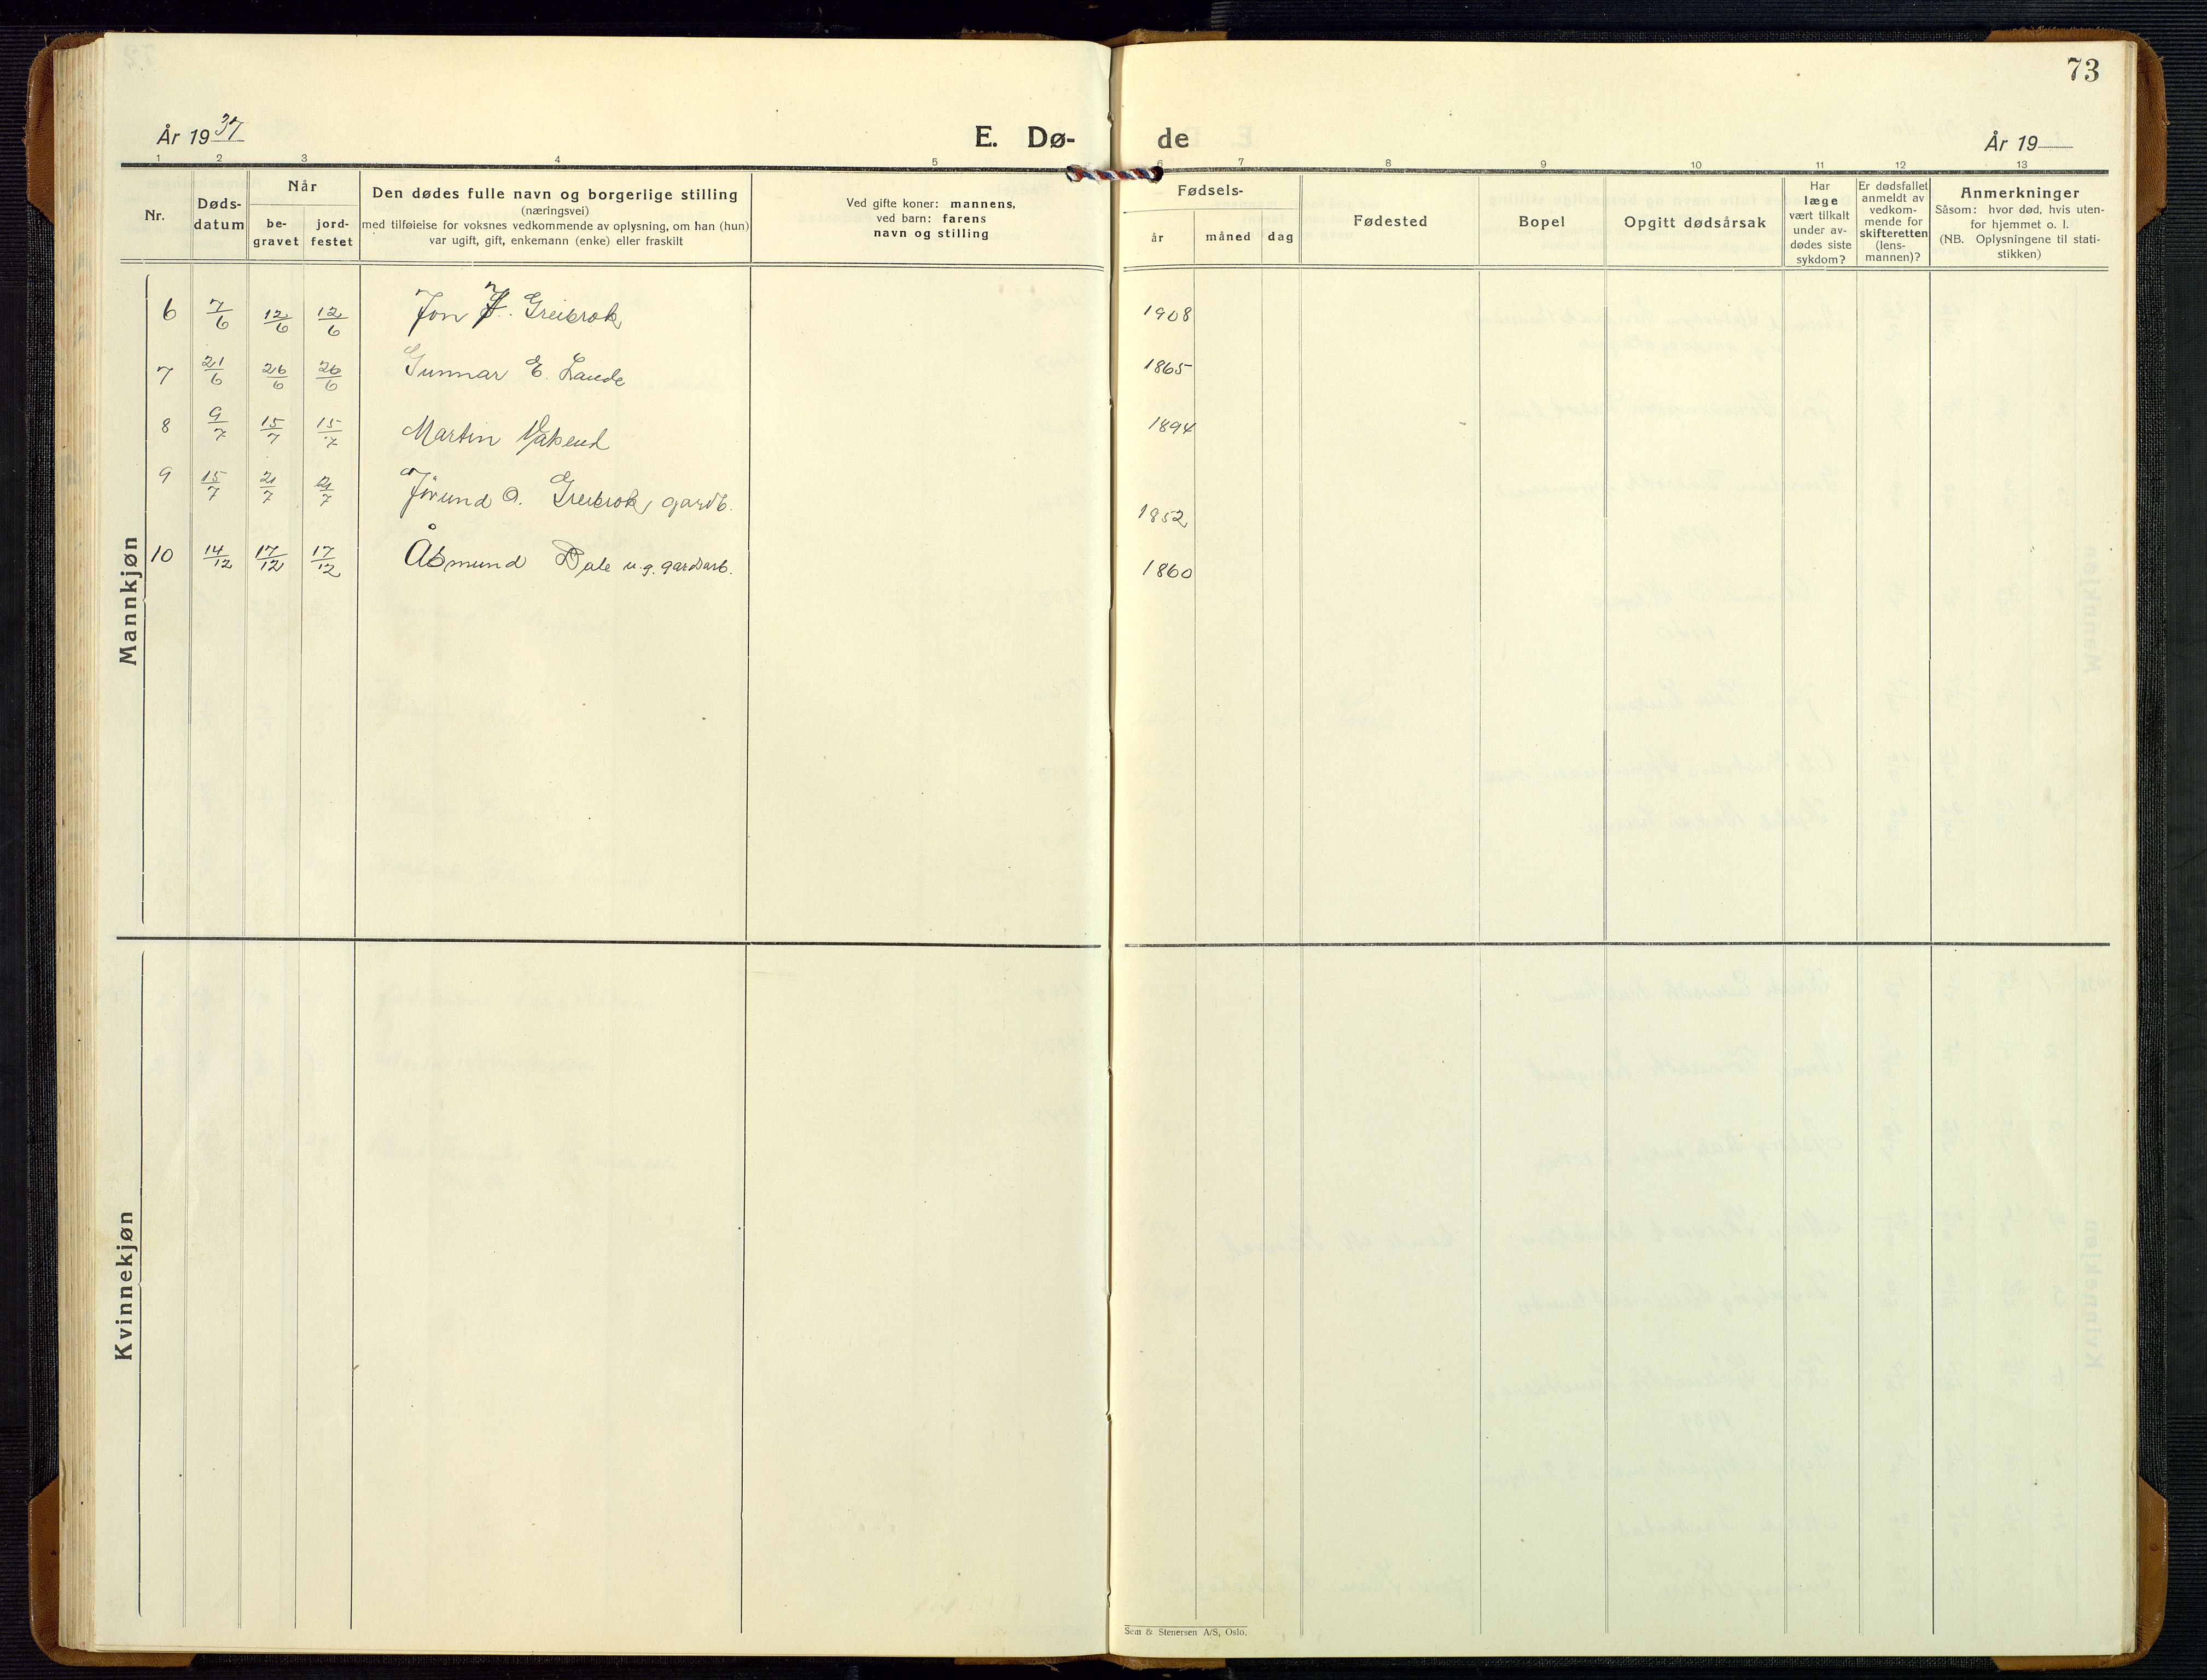 73
År 1937
E. Dø-
de
År 19
1 2 3 4 5 6 7 8 9 10 11 12 13
Nr.
Døds-
datum
Når
be-
gravet
jord-
festet
Den dødes fulle navn og borgerlige stilling
(næringsvei)
med tilføielse for voksnes vedkommende av oplysning, om han (hun)
var ugift, gift, enkemann (enke) eller fraskilt
Ved gifte koner: mannens,
ved barn: farens
navn og stilling
Fødsels-
år
måned
dag
Fødested
Bopel
Opgitt dødsårsak
Har
læge
vært tilkalt
under av-
dødes siste
sykdom?
Er dødsfallet
anmeldt av
vedkom-
mende for
skifteretten
(lens-
mannen)?
Anmerkninger
Såsom: hvor død, hvis uten-
for hjemmet o. l.
(NB. Oplysningene til stati-
stikken)
Mannkjøn
6 7/6 12/6 12/6 Jon J. Greibrok 1908
7 21/6 26/6 26/6 Gunnar E. Lande 1865
8 9/7 15/7 15/7 Martin 1894
9 15/7 21/7 21/7 Jörund O. Greibrok, gardb. 1852
10 14/12 17/12 17/12 Åsmund Dale u.g. gardarb. 1860
Kvinnekjøn
Sem & Stenersen A/S, Oslo.